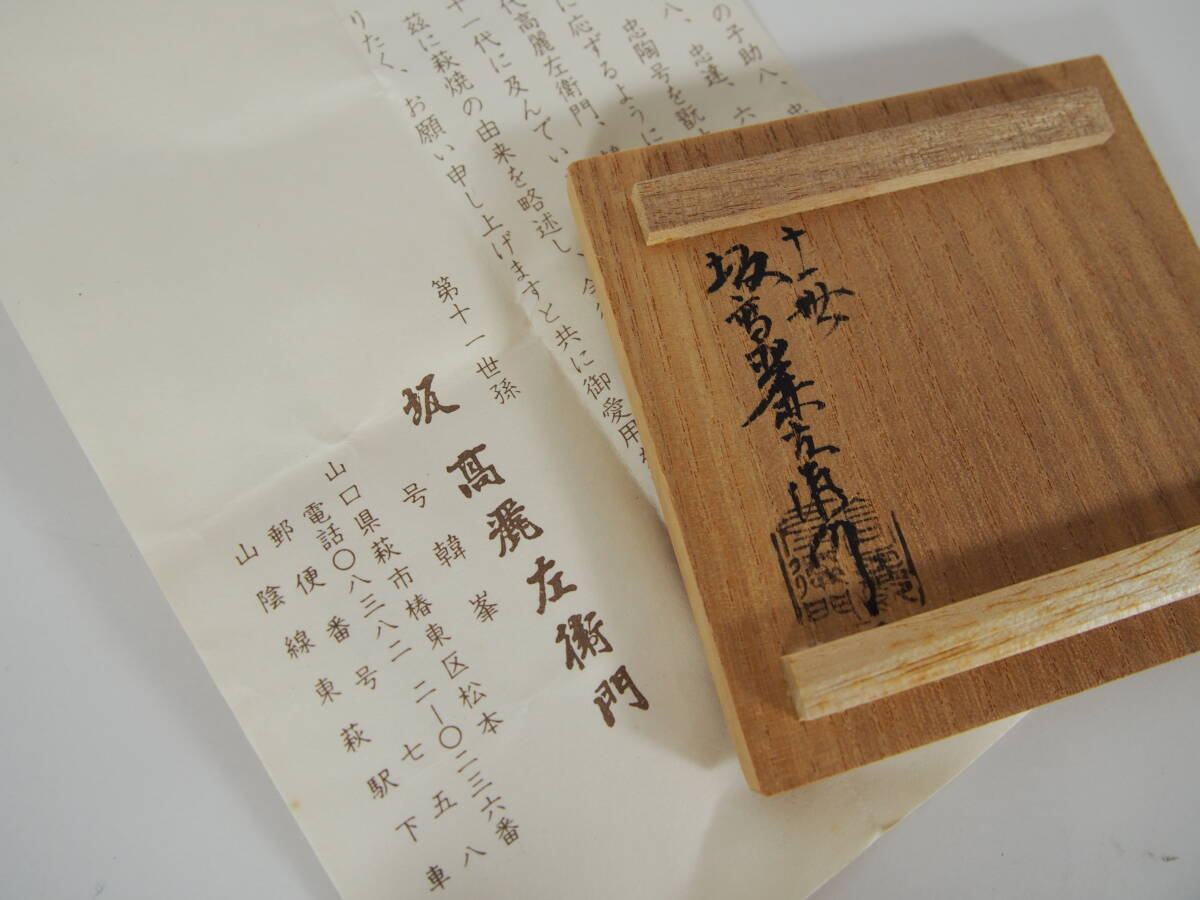 の子助八、忠
八、忠達、六
忠陶号を
に応ずるように
代高麗左衛門、
十一代に及んてい
茲に萩焼の由来を略述し、今
りたく、お願い申し上げますと共に御愛用
第十一世孫
坂高麗左衛門
号韓峯
山口県萩市椿東区松本
電話〇八三八二 二-〇二三六番
郵便番号 七五八
山陰線東萩駅下車
十一世
坂高麗左衛門